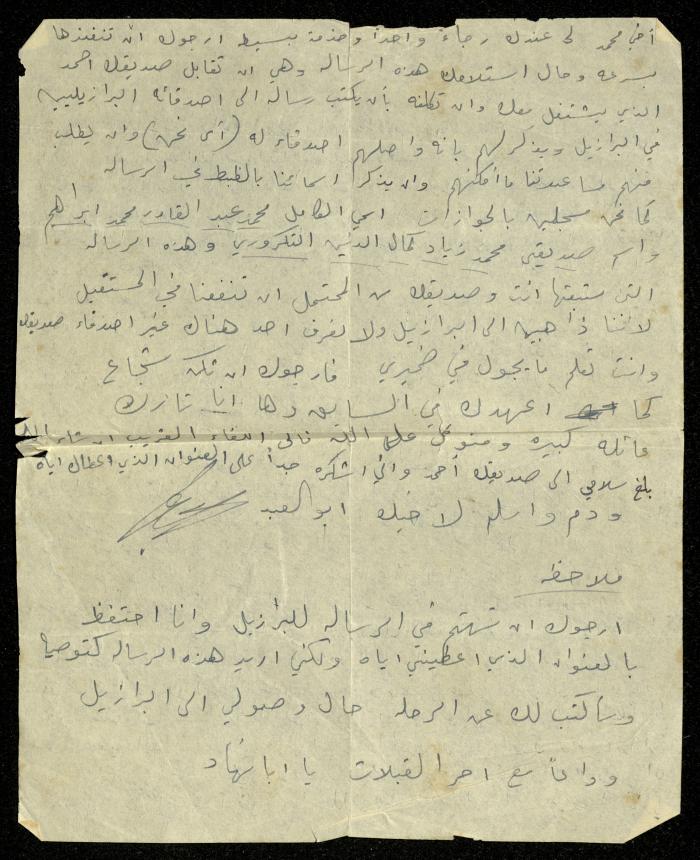 أخي محمد لي عندك رجاءً واحداً وخدمة بسيطة ارجوك ان تنفذها
بسرعه وحال استلامك هذه الرساله وهي ان تقابل صديقك احمد
الذي يشتغل معك وان تكلفه بأن يكتب رسالة الى اصدقائه البرازيليين
في البرازيل ويذكر لهم بانه واصلهم اصدقاء له (أي نحن) وان يطلب
منهم مساعدتنا ما أمكنهم وان يذكر اسمائنا بالظبط في الرسالة
كما نحن مسجلين بالجوازات اسمي الكامل محمد عبد القادر محمد ابراهيم
واسم صديقي محمد زياد كمال الدين التكروري وهذه الرساله
التي ستبعثها انت وصديقك من المحتمل ان تنفعنا في المستقبل
لأننا ذاهبين الى البرازيل ولا نعرف احد هناك غير اصدقاء صديقك
وانت تعلم ما يجول في ضميري فارجوك ان تكن شجاع
كما اعهدك في السابق وها انا تارك
عائلة كبيره ومتوكل على الله فالى اللقاء القريب ان شاء الله
بلغ سلامي الى صديقك أحمد واني اشكره جداً على العنوان الذي اعطاك اياه
ودم واسلم لاخيك ابو العبد
ملاحظه
ارجوك ان تهتم في الرساله للبرازيل وانا احتفظ
بالعنوان الذي اعطيتني اياه ولكني اريد هذه الرساله كتوصيا
وسأكتب لك عن الرحله حال وصولي الى البرازيل
وداعاً مع احر القبلات يا ابا نهاد